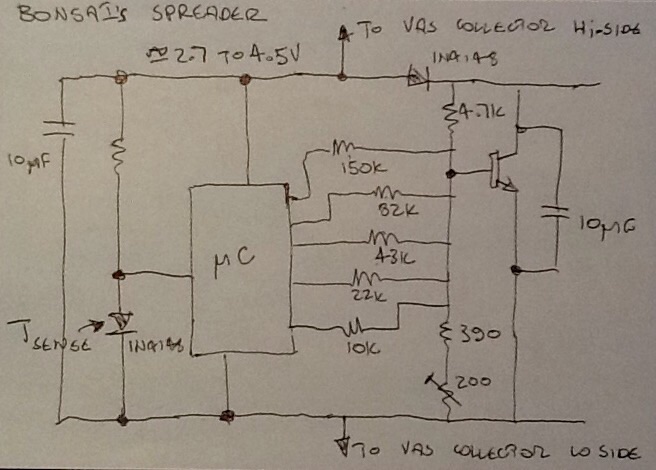 BONSAI'S SPREADER
TO VAS COLLECTOR Hi-SIDE
≈2.7 TO 4.5V
1NA148
4.7K
10µF
150K
82K
10µF
µC
43K
22K
TSENSE
1NA148
390
10K
200
TO VAS COLLECTOR LO SIDE